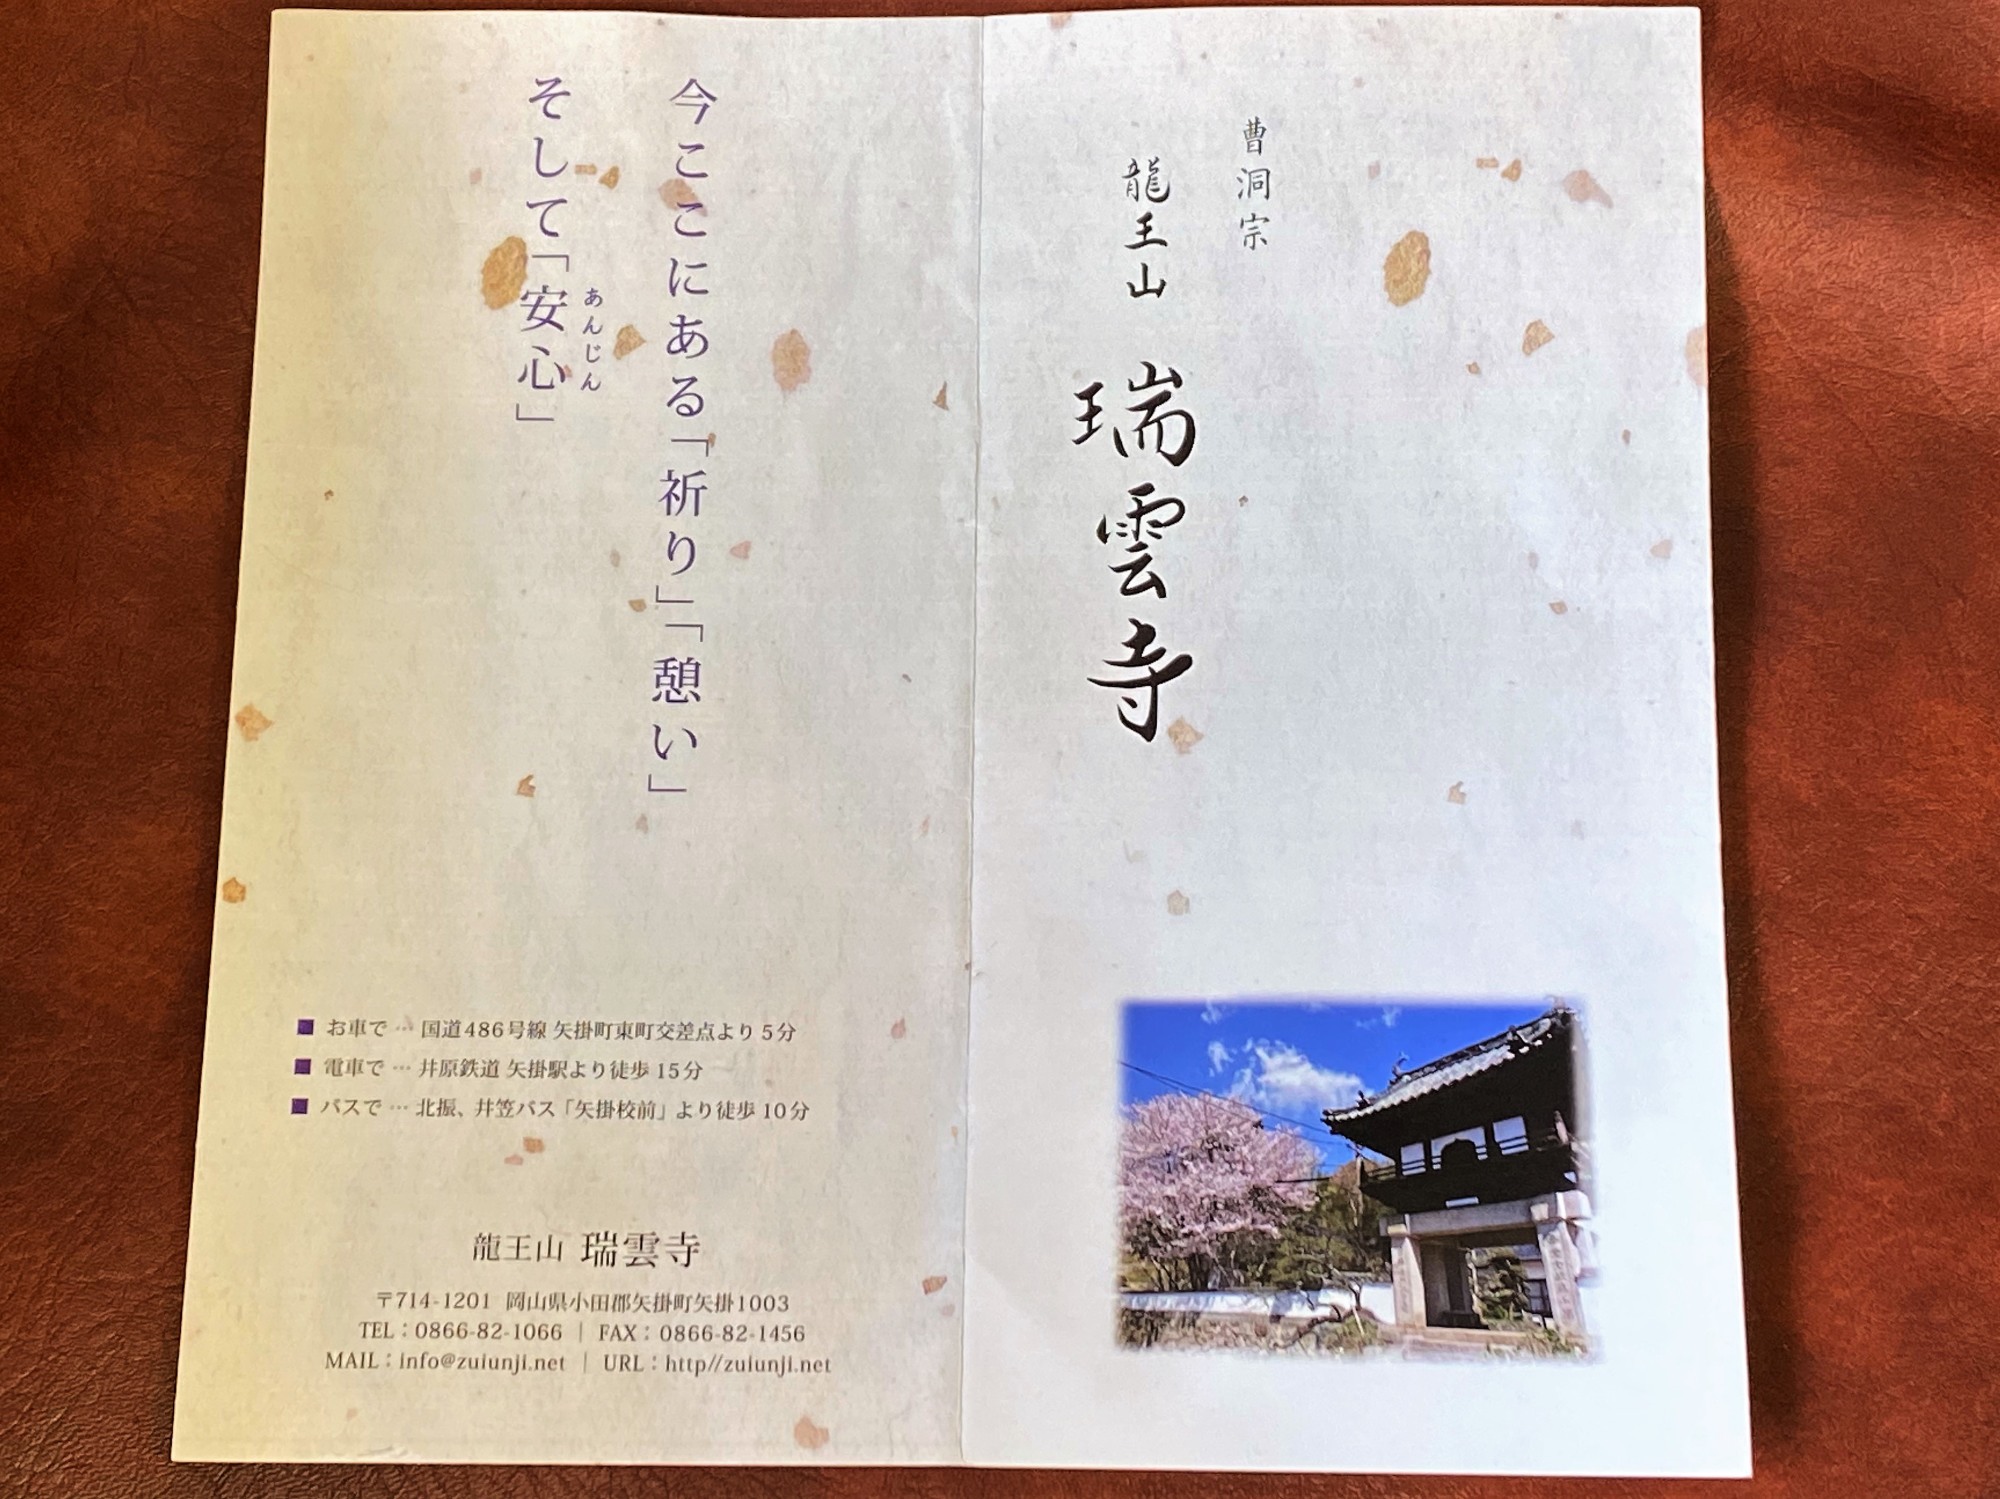 曹洞宗
龍王山 瑞雲寺
今ここにある「祈り」「憩い」
そして「安心」
あんじん
■ お車で … 国道486号線 矢掛町東町交差点より 5分
■ 電車で … 井原鉄道 矢掛駅より徒歩 15分
■ バスで … 北振、井笠バス「矢掛校前」より徒歩 10分
龍王山 瑞雲寺
〒714-1201 岡山県小田郡矢掛町矢掛1003
TEL：0866-82-1066 ｜ FAX：0866-82-1456
MAIL：info@zuiunji.net ｜ URL：http//zuiunji.net